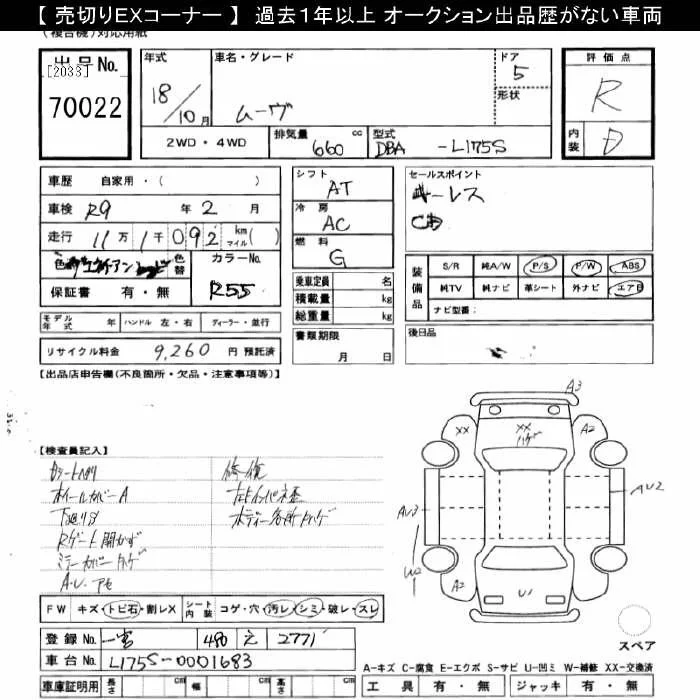 【 売切りEXコーナー 】 過去1年以上 オークション出品歴がない車両
(複合機)対応用紙
出品No.
[2033]
70022
年式
18/10月
車名・グレード
ムーヴ
ドア
5
形状
評価点
R
内装
D
2WD・4WD
排気量 660 cc
型式 DBA -L175S
車歴 自家用・( )
車検 R9 年 2 月
走行 11万1千092 km マイル( )
色 色替
カラーNo. R55
保証書 有・無
シフト AT
冷房 AC
燃料 G
乗車定員 名
積載量 kg
総重量 kg
書類期限
月 日
セールスポイント
キーレス
CD
装備品
S/R 純A/W P/S P/W ABS
純TV 純ナビ 革シート 外ナビ エアB
ナビ型番:
後日品
モデル年式 年 ハンドル 左・右 ディーラー・並行
リサイクル料金 9,260 円 預託済
【出品店申告欄(不良箇所・欠品・注意事項等)】
【検査員記入】
ホイールカバーA
下廻りS
Rゲート開かず
ミラーカバー
A.U. アセ
修復
ボディー各所
A3
XX
XX
ハゲ
A2
AU3
AU2
W2
A2
U1
スペア
FW キズ・トビ石・割レX シート内装 コゲ・穴・汚レ・シミ・破レ・スレ
登録No. 一宮 480 え 2771
車台No. L175S-0001683
車庫証明用 長さ cm 幅 cm 高さ cm
A-キズ C-腐食 E-エクボ S-サビ U-凹ミ W-補修 XX-交換済
工具 有・無 ジャッキ 有・無